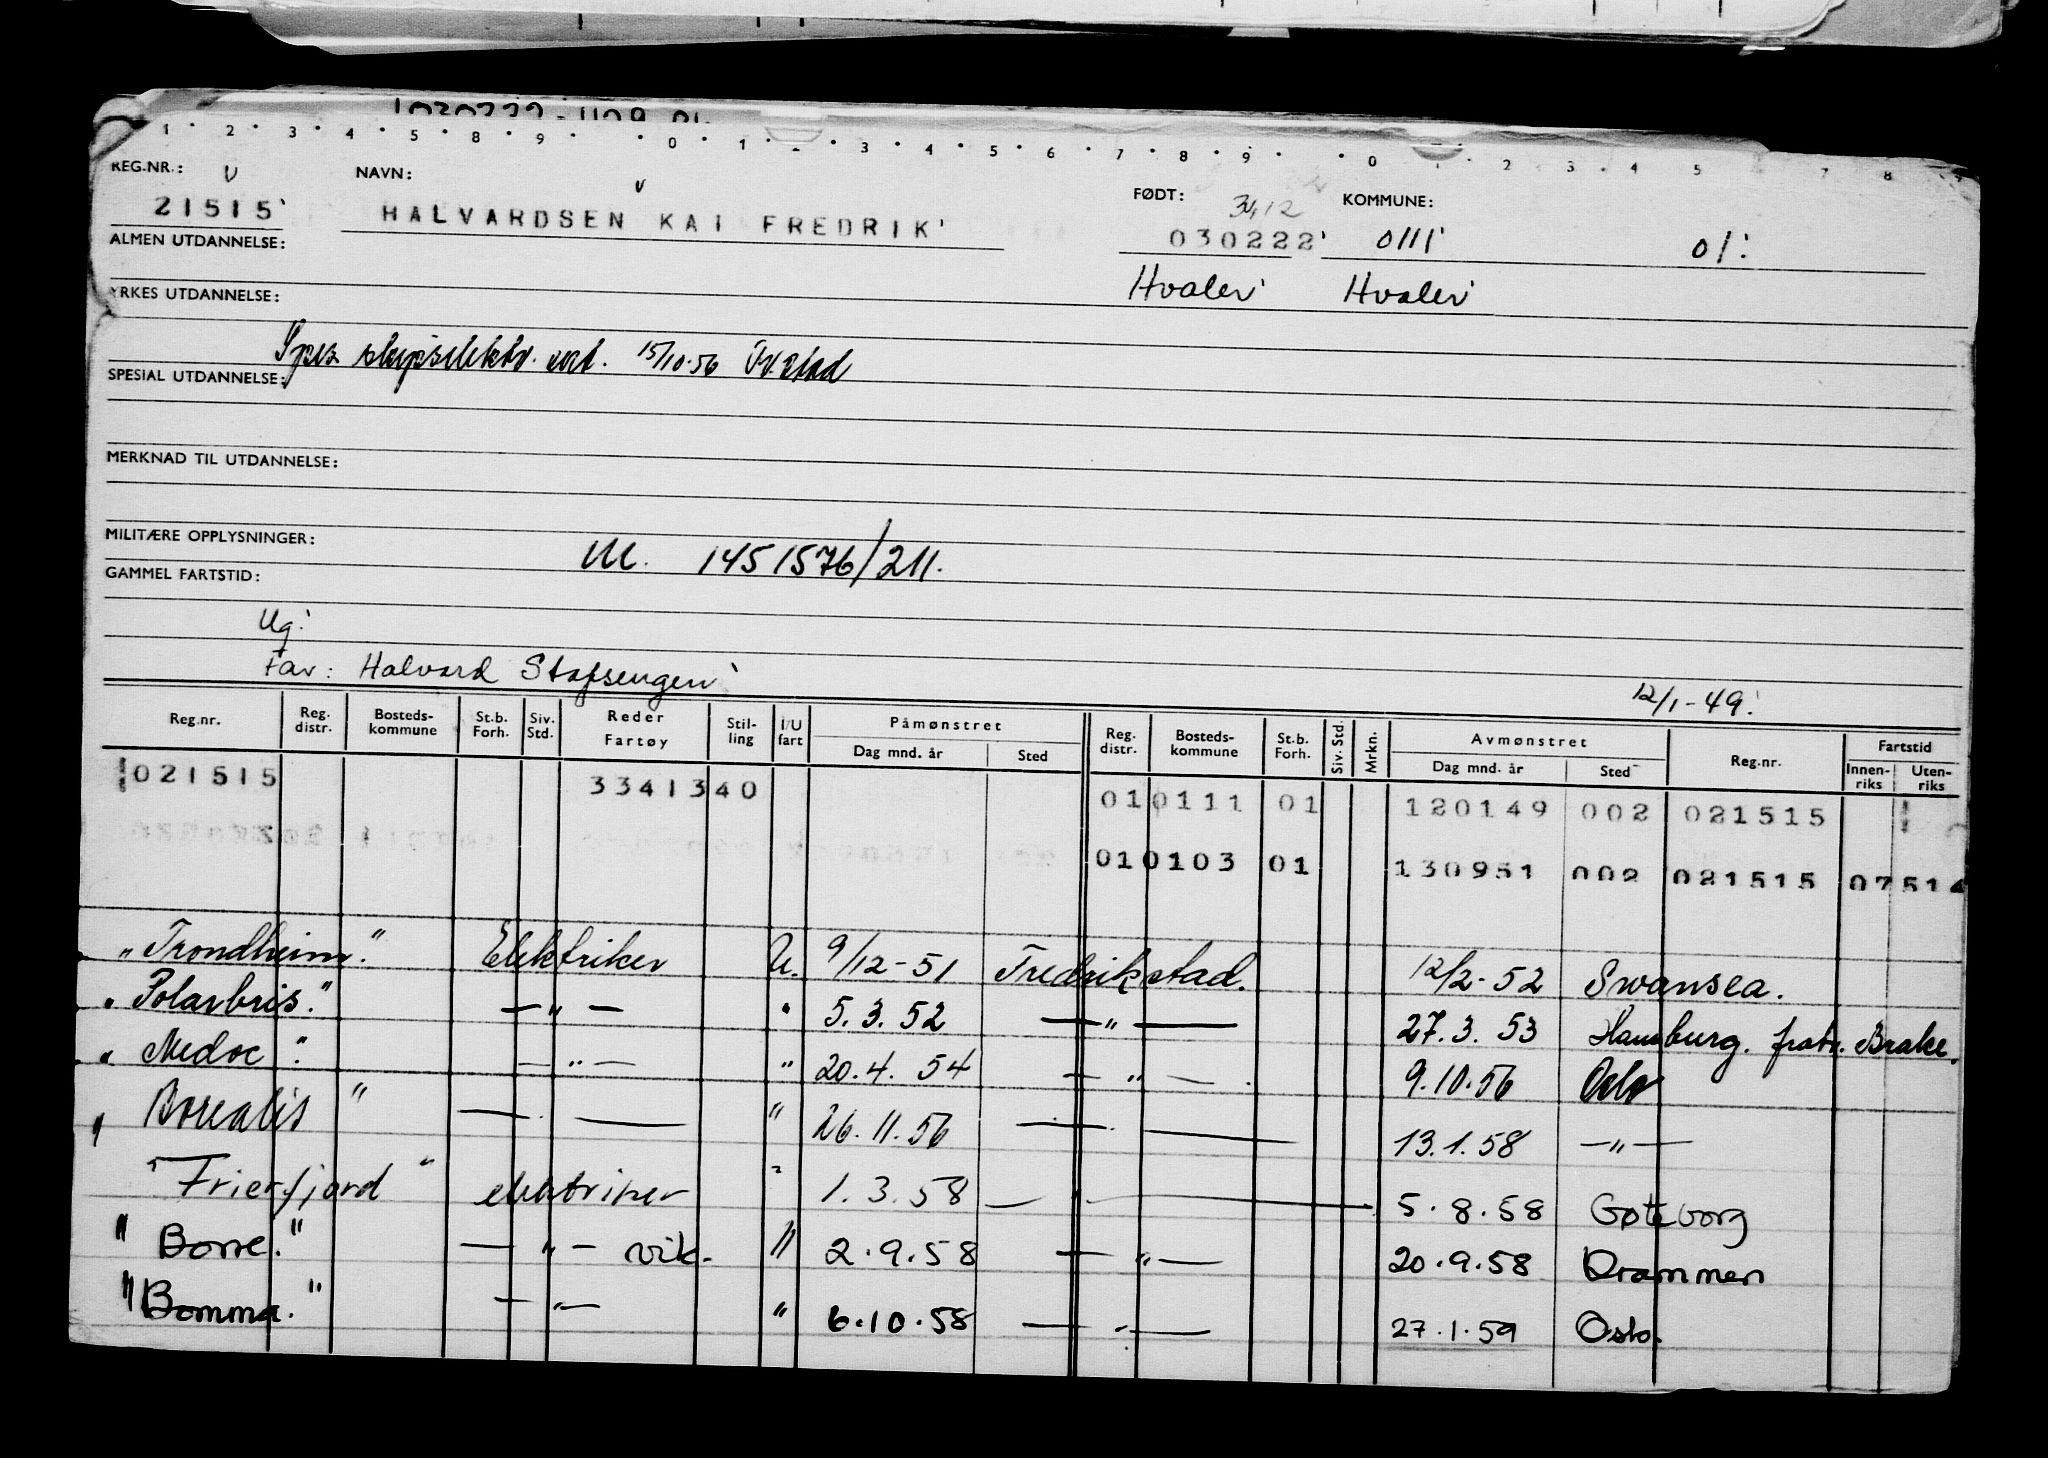 1 · 2 · 3 · 4 · 5 · 8 · 9 · 0 · 1 · 3 · 4 · 5 · 6 · 7 · 8 · 9 · · 0 · 2 3 · 4 5 7 8
REG.NR.: NAVN: FØDT: KOMMUNE:
21515 HALVARDSEN KAI FREDRIK 030222 0111 01
ALMEN UTDANNELSE: Hvaler Hvaler
YRKES UTDANNELSE:
skipselektr. 15/10.56
SPESIAL UTDANNELSE:
MERKNAD TIL UTDANNELSE:
MILITÆRE OPPLYSNINGER: M. 1451576/211.
GAMMEL FARTSTID:
Ug.
Far: Halvard Stafsengen 12/1-49.
Reg.nr. Reg. distr. Bosteds-kommune St.b. Forh. Siv. Std. Reder Fartøy Stil-ling I/U fart Påmønstret Dag mnd. år Sted Reg. distr. Bosteds-kommune St.b. Forh. Siv. Std. Mrkn. Avmønstret Dag mnd. år Sted Reg.nr. Fartstid Innen-riks Uten-riks
021515 3341340 01 0111 01 120149 002 021515
01 0103 01 130951 002 021515 07514
"Trondheim." Elektriker U. 9/12-51 Fredrikstad. 12/2-52 Swansea.
"Polarbris." —"— " 5.3.52 —"— 27.3.53 Hamburg. fratr. Brake.
"Medoc". —"— " 20.4.54 —"— 9.10.56 Oslo
"Borealis" — — " 26.11.56 — — 13.1.58 —"—
"Frierfjord" elektriker " 1.3.58 — — 5.8.58 Gøteborg
"Borre." —"— vik. " 2.9.58 —"— 20.9.58 Drammen
"Bomma." —"— " 6.10.58 —"— 27.1.59 Oslo.